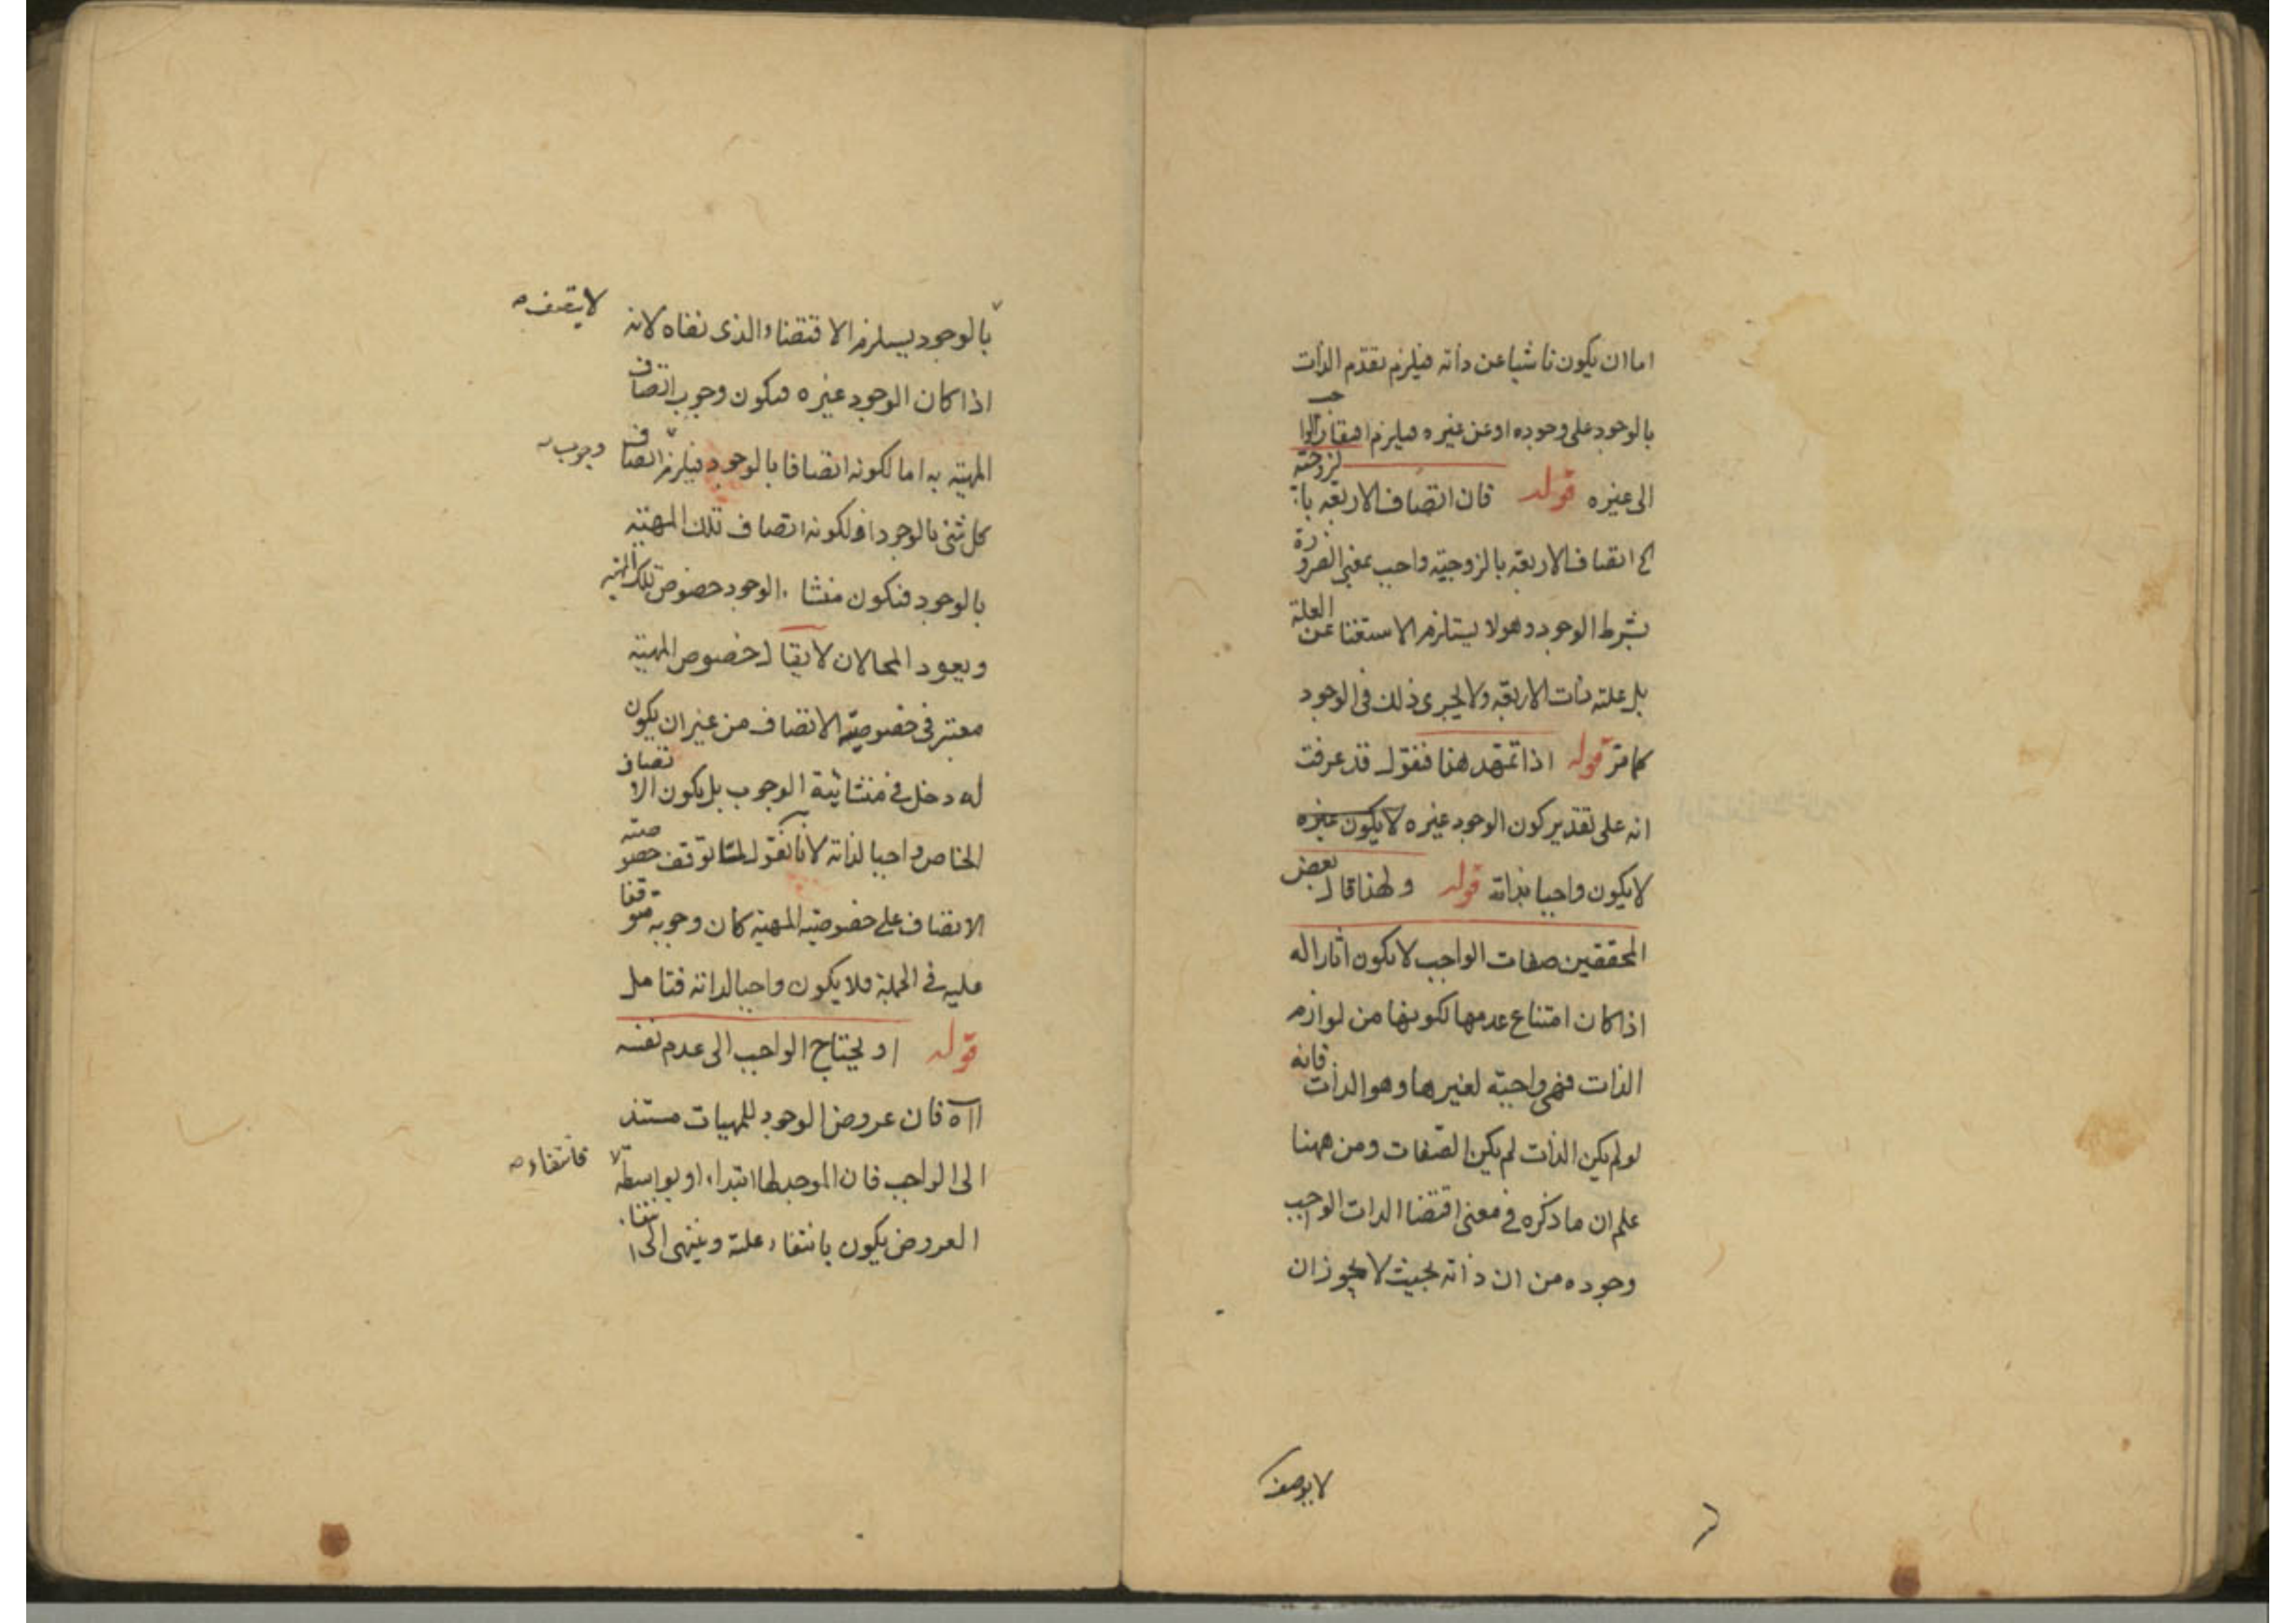 اما ان يكون ناشيا عن ذاته فيلزم تقدم الذات
بالوجود على وجوده او عن غيره فيلزم افتقار الواجب
الى غيره قوله فان اتصاف الاربعة بالزوجية
الخ اتصاف الاربعة بالزوجية واجب بمعنى الضرورة
بشرط الوجود وهو لا يستلزم الاستغنا عن العلة
بل علته ذات الاربعة ولا يجرى ذلك فى الوجود
كما مرّ قوله اذا تمهد هذا فنقول قد عرفت
انه على تقدير كون الوجود غيره لا يكون غيره
لا يكون واجبا بذاته قوله ولهذا قال بعض
المحققين صفات الواجب لا يكون اثارا له
اذا كان امتناع عدمها لكونها من لوازم
الذات فهى واجبة لغيرها وهو الذات فانه
لو لم يكن الذات لم يكن الصّفات ومن ههنا
علم ان ما ذكره فى معنى اقتضا الذات الواجب
وجوده من ان ذاته بحيث لا يجوز ان
لا يوصف
لا يتصف
بالوجود يستلزم الاقتضاء الذى نفاه لانه
اذا كان الوجود غيره فيكون وجوب اتصاف
المهية به اما لكونه اتصافا بالوجود فيلزم اتصاف
وجوب
كل شئ بالوجود او لكونه اتصاف تلك المهية
بالوجود فيكون منشاء الوجود خصوص تلك المهية
ويعود المحالان لا يقال خصوص المهية
معتبر فى خصوصيّة الاتصاف من غير ان يكون
له دخل فى منشائية الوجوب بل يكون الاتصاف
الخاص واجبا لذاته لانا نقول لمّا توقف خصوصية
الاتصاف على خصوصية المهية كان وجوبه متوقفا
عليه فى الجملة فلا يكون واجبا لذاته فتامل
قوله او يحتاج الواجب الى عدم نفسه
اه فان عروض الوجود للمهيات مستند
الى الواجب فان الموجد لها ابتداء او بواسطة
فانتفاء
العروض يكون بانتفاء علة وينتهى الى انتفاء